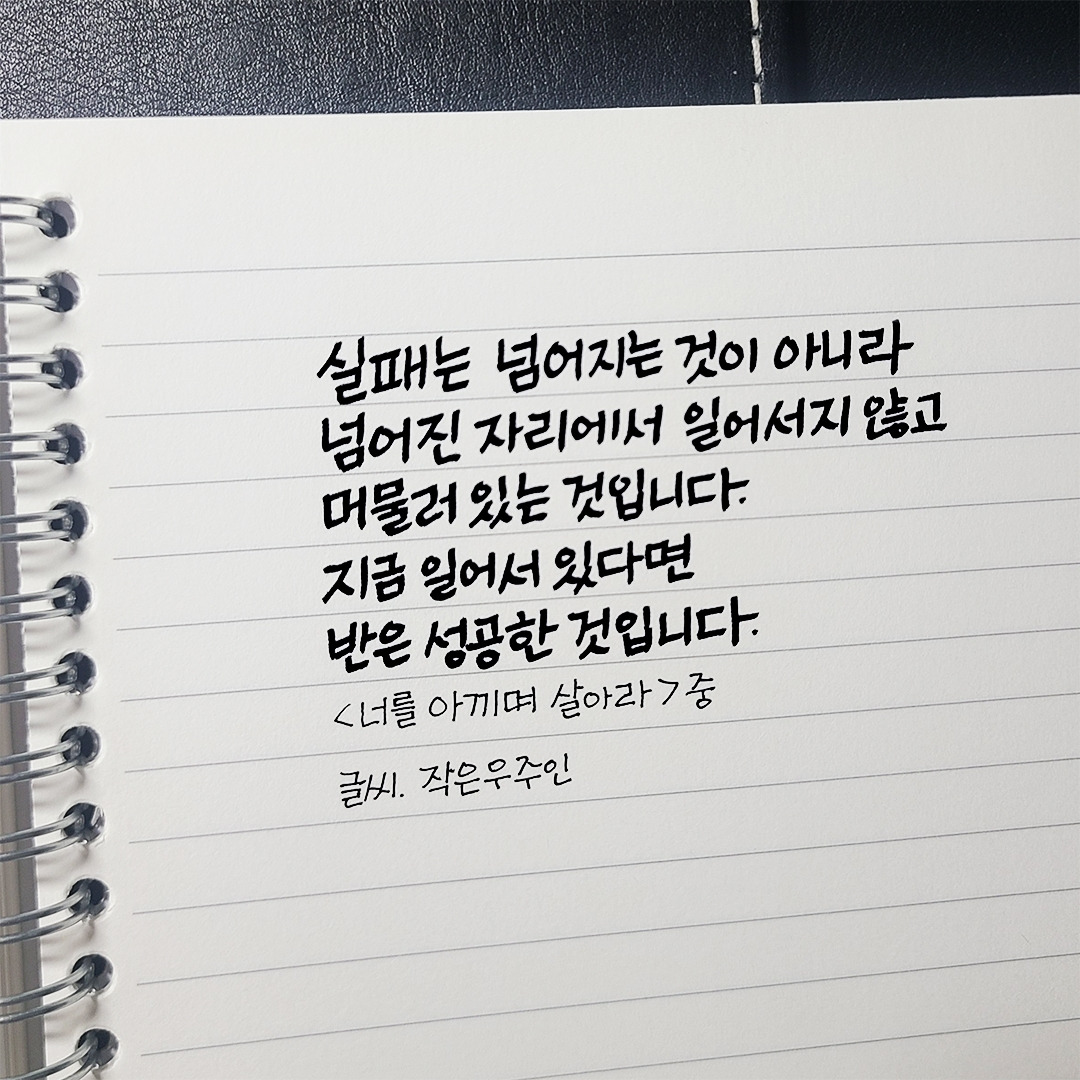 실패는 넘어지는 것이 아니라
넘어진 자리에서 일어서지 않고
머물러 있는 것입니다.
지금 일어서 있다면
반은 성공한 것입니다.
<너를 아끼며 살아라>중
글씨. 작은우주인